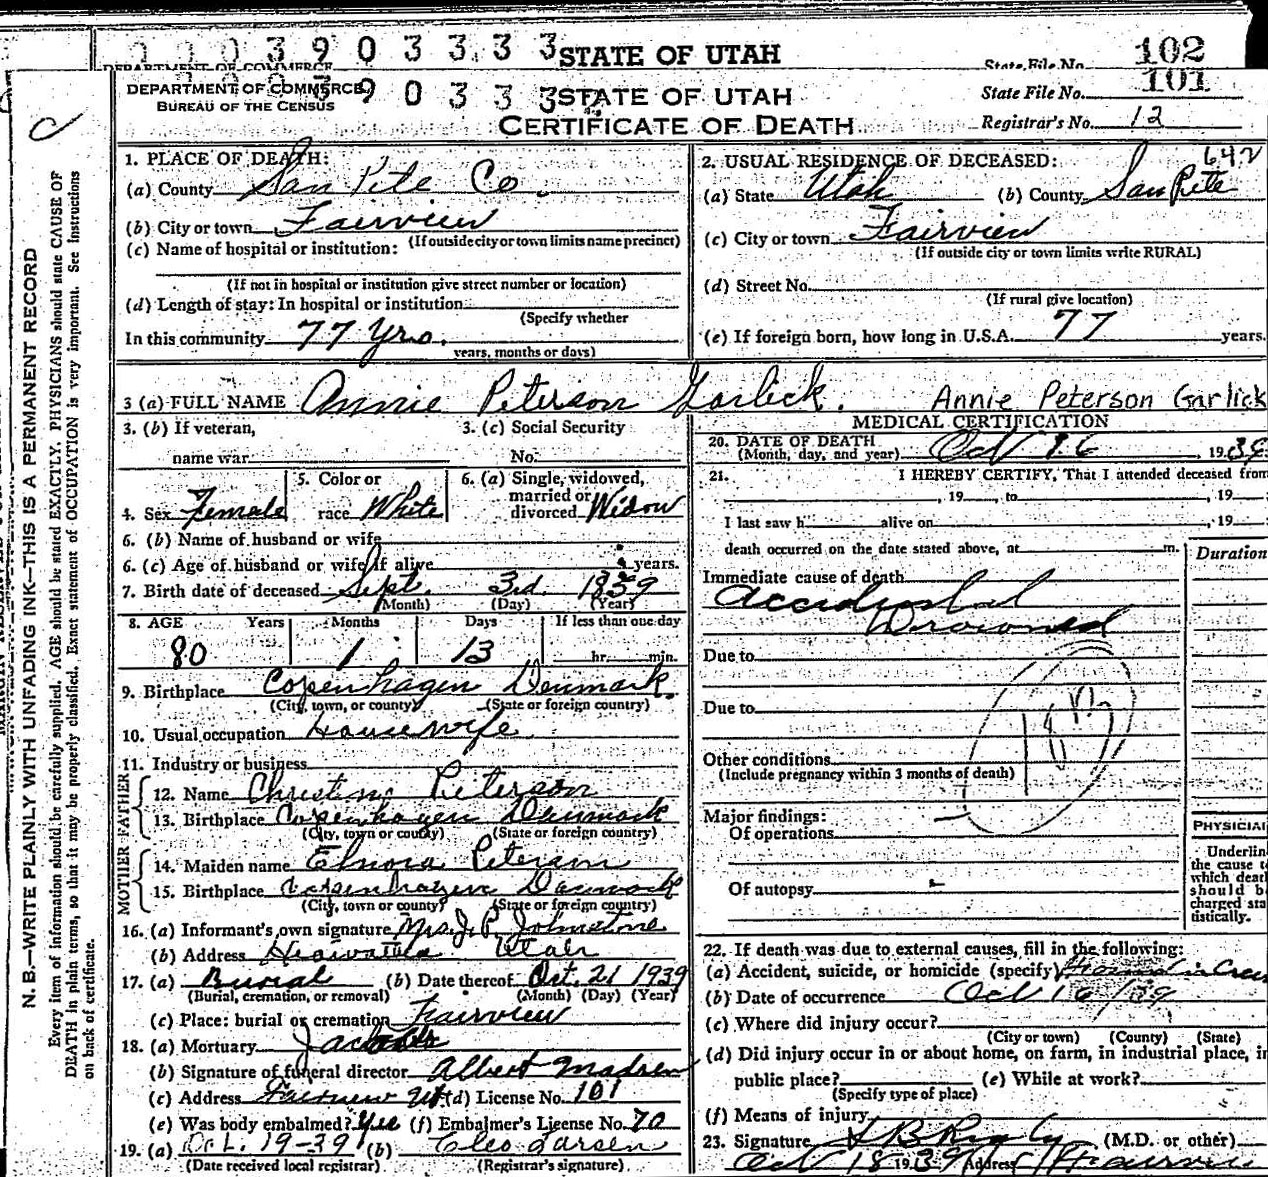 0 0 0 3 9 0 3 3 3 3 STATE OF UTAH
DEPARTMENT OF COMMERCE State File No. 102
DEPARTMENT OF COMMERCE 3 9 0 3 3 3 STATE OF UTAH State File No. 101
BUREAU OF THE CENSUS
CERTIFICATE OF DEATH Registrar's No. 12
N. B.—WRITE PLAINLY WITH UNFADING INK—THIS IS A PERMANENT RECORD
Every item of information should be carefully supplied. AGE should be stated EXACTLY. PHYSICIANS should state CAUSE OF
DEATH in plain terms, so that it may be properly classified. Exact statement of OCCUPATION is very important. See Instructions
on back of certificate.
1. PLACE OF DEATH:
(a) County San Pete Co.
(b) City or town Fairview
(If outside city or town limits name precinct)
(c) Name of hospital or institution:
(If not in hospital or institution give street number or location)
(d) Length of stay: In hospital or institution
(Specify whether
In this community 77 Yrs.
years, months or days)
2. USUAL RESIDENCE OF DECEASED: 642
(a) State Utah (b) County San Pete
(c) City or town Fairview
(If outside city or town limits write RURAL)
(d) Street No.
(If rural give location)
(e) If foreign born, how long in U.S.A. 77 years.
3 (a) FULL NAME Annie Peterson Garlick. Annie Peterson Garlick
3. (b) If veteran, 3. (c) Social Security
name war No.
4. Sex Female 5. Color or race White 6. (a) Single, widowed, married or divorced Widow
6. (b) Name of husband or wife
6. (c) Age of husband or wife if alive years.
7. Birth date of deceased Sept. 3rd. 1859
(Month) (Day) (Year)
8. AGE Years Months Days If less than one day
80 1 13 hr. min.
9. Birthplace Copenhagen Denmark.
(City, town, or county) (State or foreign country)
10. Usual occupation Housewife
11. Industry or business
FATHER
12. Name Peterson
13. Birthplace Copenhagen Denmark
(City, town or county) (State or foreign country)
MOTHER
14. Maiden name Elnora Peterson
15. Birthplace Copenhagen Denmark
(City, town or county) (State or foreign country)
16. (a) Informant's own signature Mrs. J. P. Johnstone
(b) Address Hiawatha Utah
17. (a) Burial (b) Date thereof Oct. 21 1939
(Burial, cremation, or removal) (Month) (Day) (Year)
(c) Place: burial or cremation Fairview
18. (a) Mortuary
(b) Signature of funeral director Albert Madsen
(c) Address Fairview Ut (d) License No. 101
(e) Was body embalmed? Yes (f) Embalmer's License No. 70
19. (a) Oct. 19-39 (b) Cleo Larsen
(Date received local registrar) (Registrar's signature)
MEDICAL CERTIFICATION
20. DATE OF DEATH
(Month, day, and year) Oct 16, 1939
21. I HEREBY CERTIFY, That I attended deceased from
, 19 , to , 19
I last saw h alive on , 19
death occurred on the date stated above, at m.
Duration
Immediate cause of death
Accidental
Drowned
Due to
Due to
Other conditions
(Include pregnancy within 3 months of death)
183
Major findings:
Of operations
Of autopsy
PHYSICIAN
Underline
the cause to
which death
should be
charged sta-
tistically.
22. If death was due to external causes, fill in the following:
(a) Accident, suicide, or homicide (specify)
(b) Date of occurrence Oct 16/39
(c) Where did injury occur?
(City or town) (County) (State)
(d) Did injury occur in or about home, on farm, in industrial place, in
public place? (e) While at work?
(Specify type of place)
(f) Means of injury
23. Signature (M.D. or other)
Oct 18 1939 Address Fairview